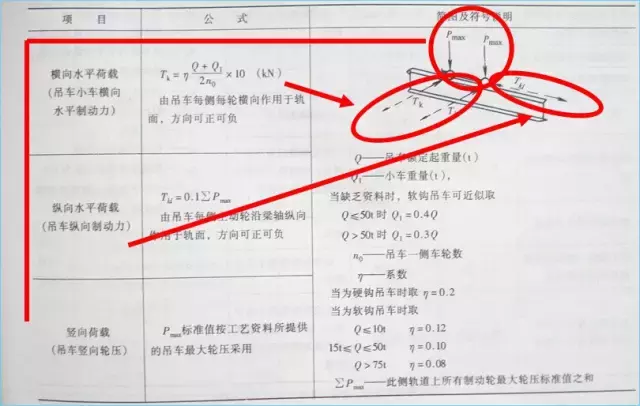 项 目 公 式 简图及符号说明
横向水平荷载
(吊车小车横向
水平制动力)
T_k = η (Q + Q₁)/(2n₀) ×10 (kN)
由吊车每侧每轮横向作用于轨
面，方向可正可负
P_max P_max
T_k T_kl
Q——吊车额定起重量(t)
Q₁——小车重量(t),
当缺乏资料时，软钩吊车可近似取
Q≤50t时 Q₁=0.4Q
Q>50t时 Q₁=0.3Q
n₀——吊车一侧车轮数
η——系数
当为硬钩吊车时取 η=0.2
当为软钩吊车时取
Q≤10t η=0.12
15t≤Q≤50t η=0.10
Q>75t η=0.08
ΣP_max——此侧轨道上所有制动轮最大轮压标准值之和
纵向水平荷载
(吊车纵向制动力)
T_kl = 0.1ΣP_max
由吊车每侧主动轮沿梁轴纵向
作用于轨面、方向可正可负
竖向荷载
(吊车竖向轮压)
P_max标准值按工艺资料所提供
的吊车最大轮压采用